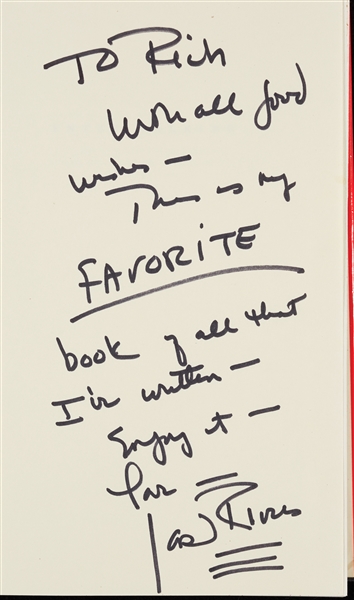 To Rich
With all good
wishes —
This is my
FAVORITE
book of all that
I've written —
Enjoy it —